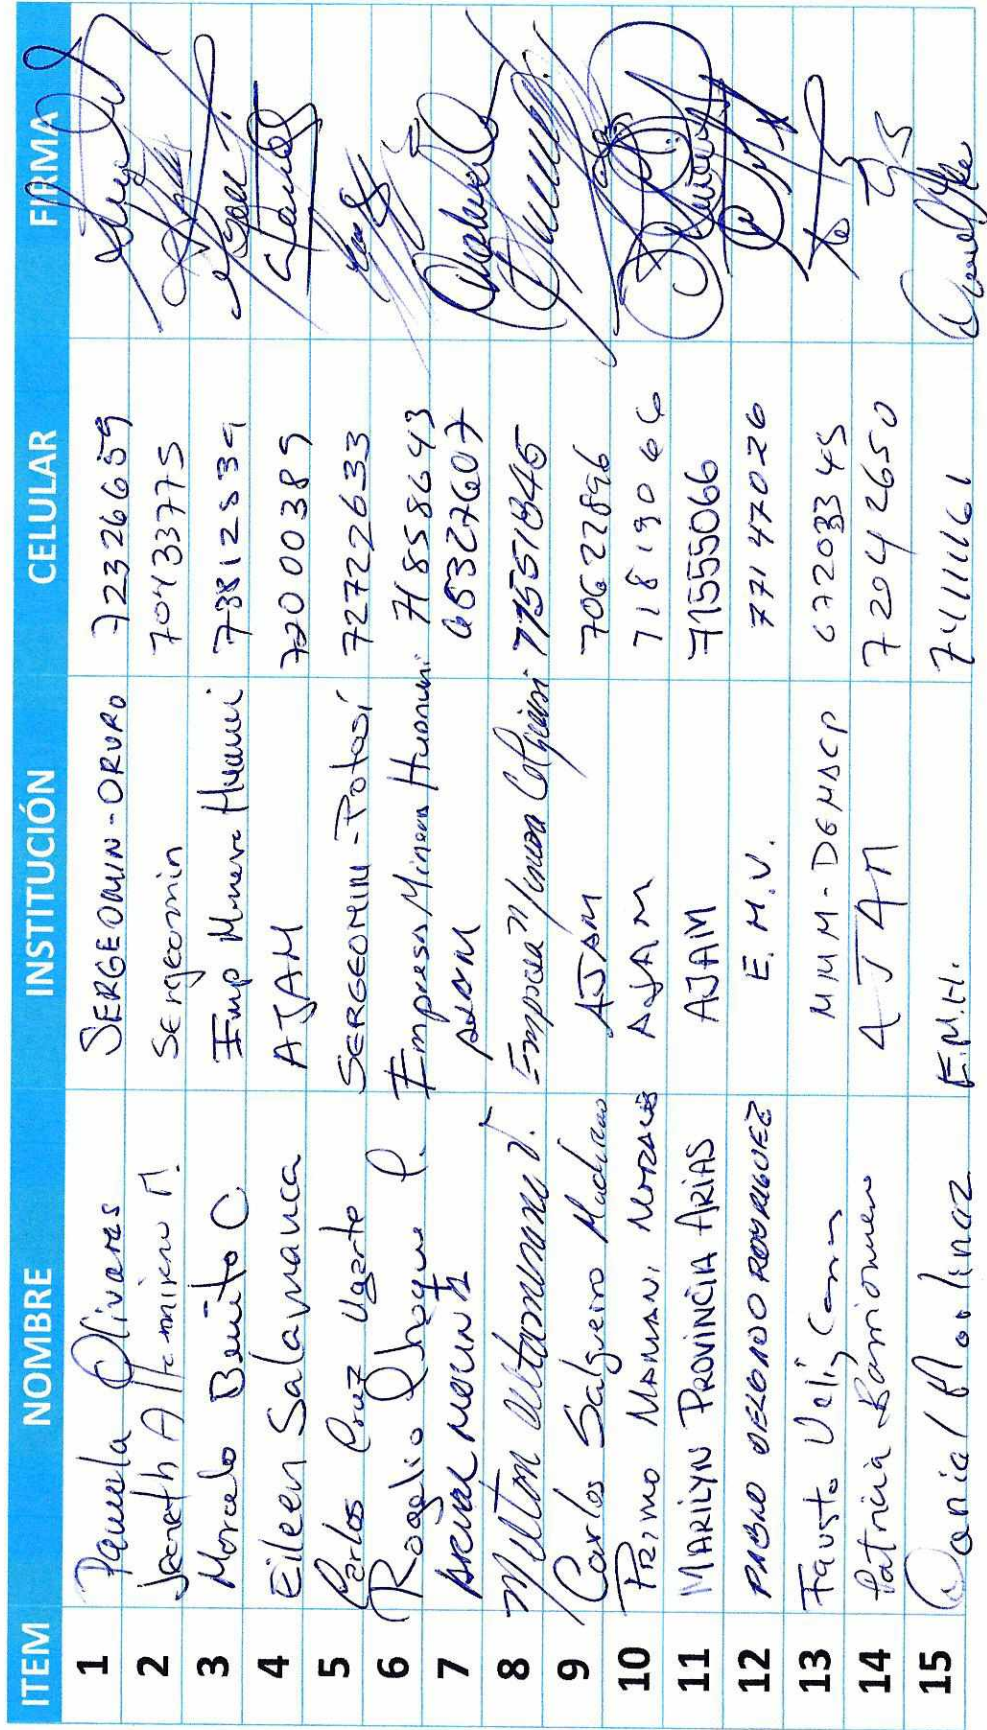 ITEM NOMBRE INSTITUCIÓN CELULAR FIRMA
1 Pamela Olivares SERGEOMIN-ORURO 72326659
2 Janeth Altamirano M. Sergeomin 70433775
3 Marcelo Benito C. Emp Minera Huanuni 73812839
4 Eileen Salamanca AJAM 72000389
5 Carlos Cruz Ugarte SERGEOMIN-Potosí 72722633
6 Rogelio Choque P. Empresa Minera Huanuni 71858643
7 AJAM 65327607
8 Milton Empresa Minera Colquiri
9 Carlos Salgueiro AJAM 70622896
10 PRIMO MAMANI MORALES AJAM 71819066
11 MARILYN PROVINCIA ARIAS AJAM 71555066
12 PABLO DELGADO RODRIGUEZ E.M.V. 77147026
13 Fausto Veliz MMM- 67203345
14 Patricia Barrionuevo AJAM 72042650
15 Daniel E.M.H. 74111161